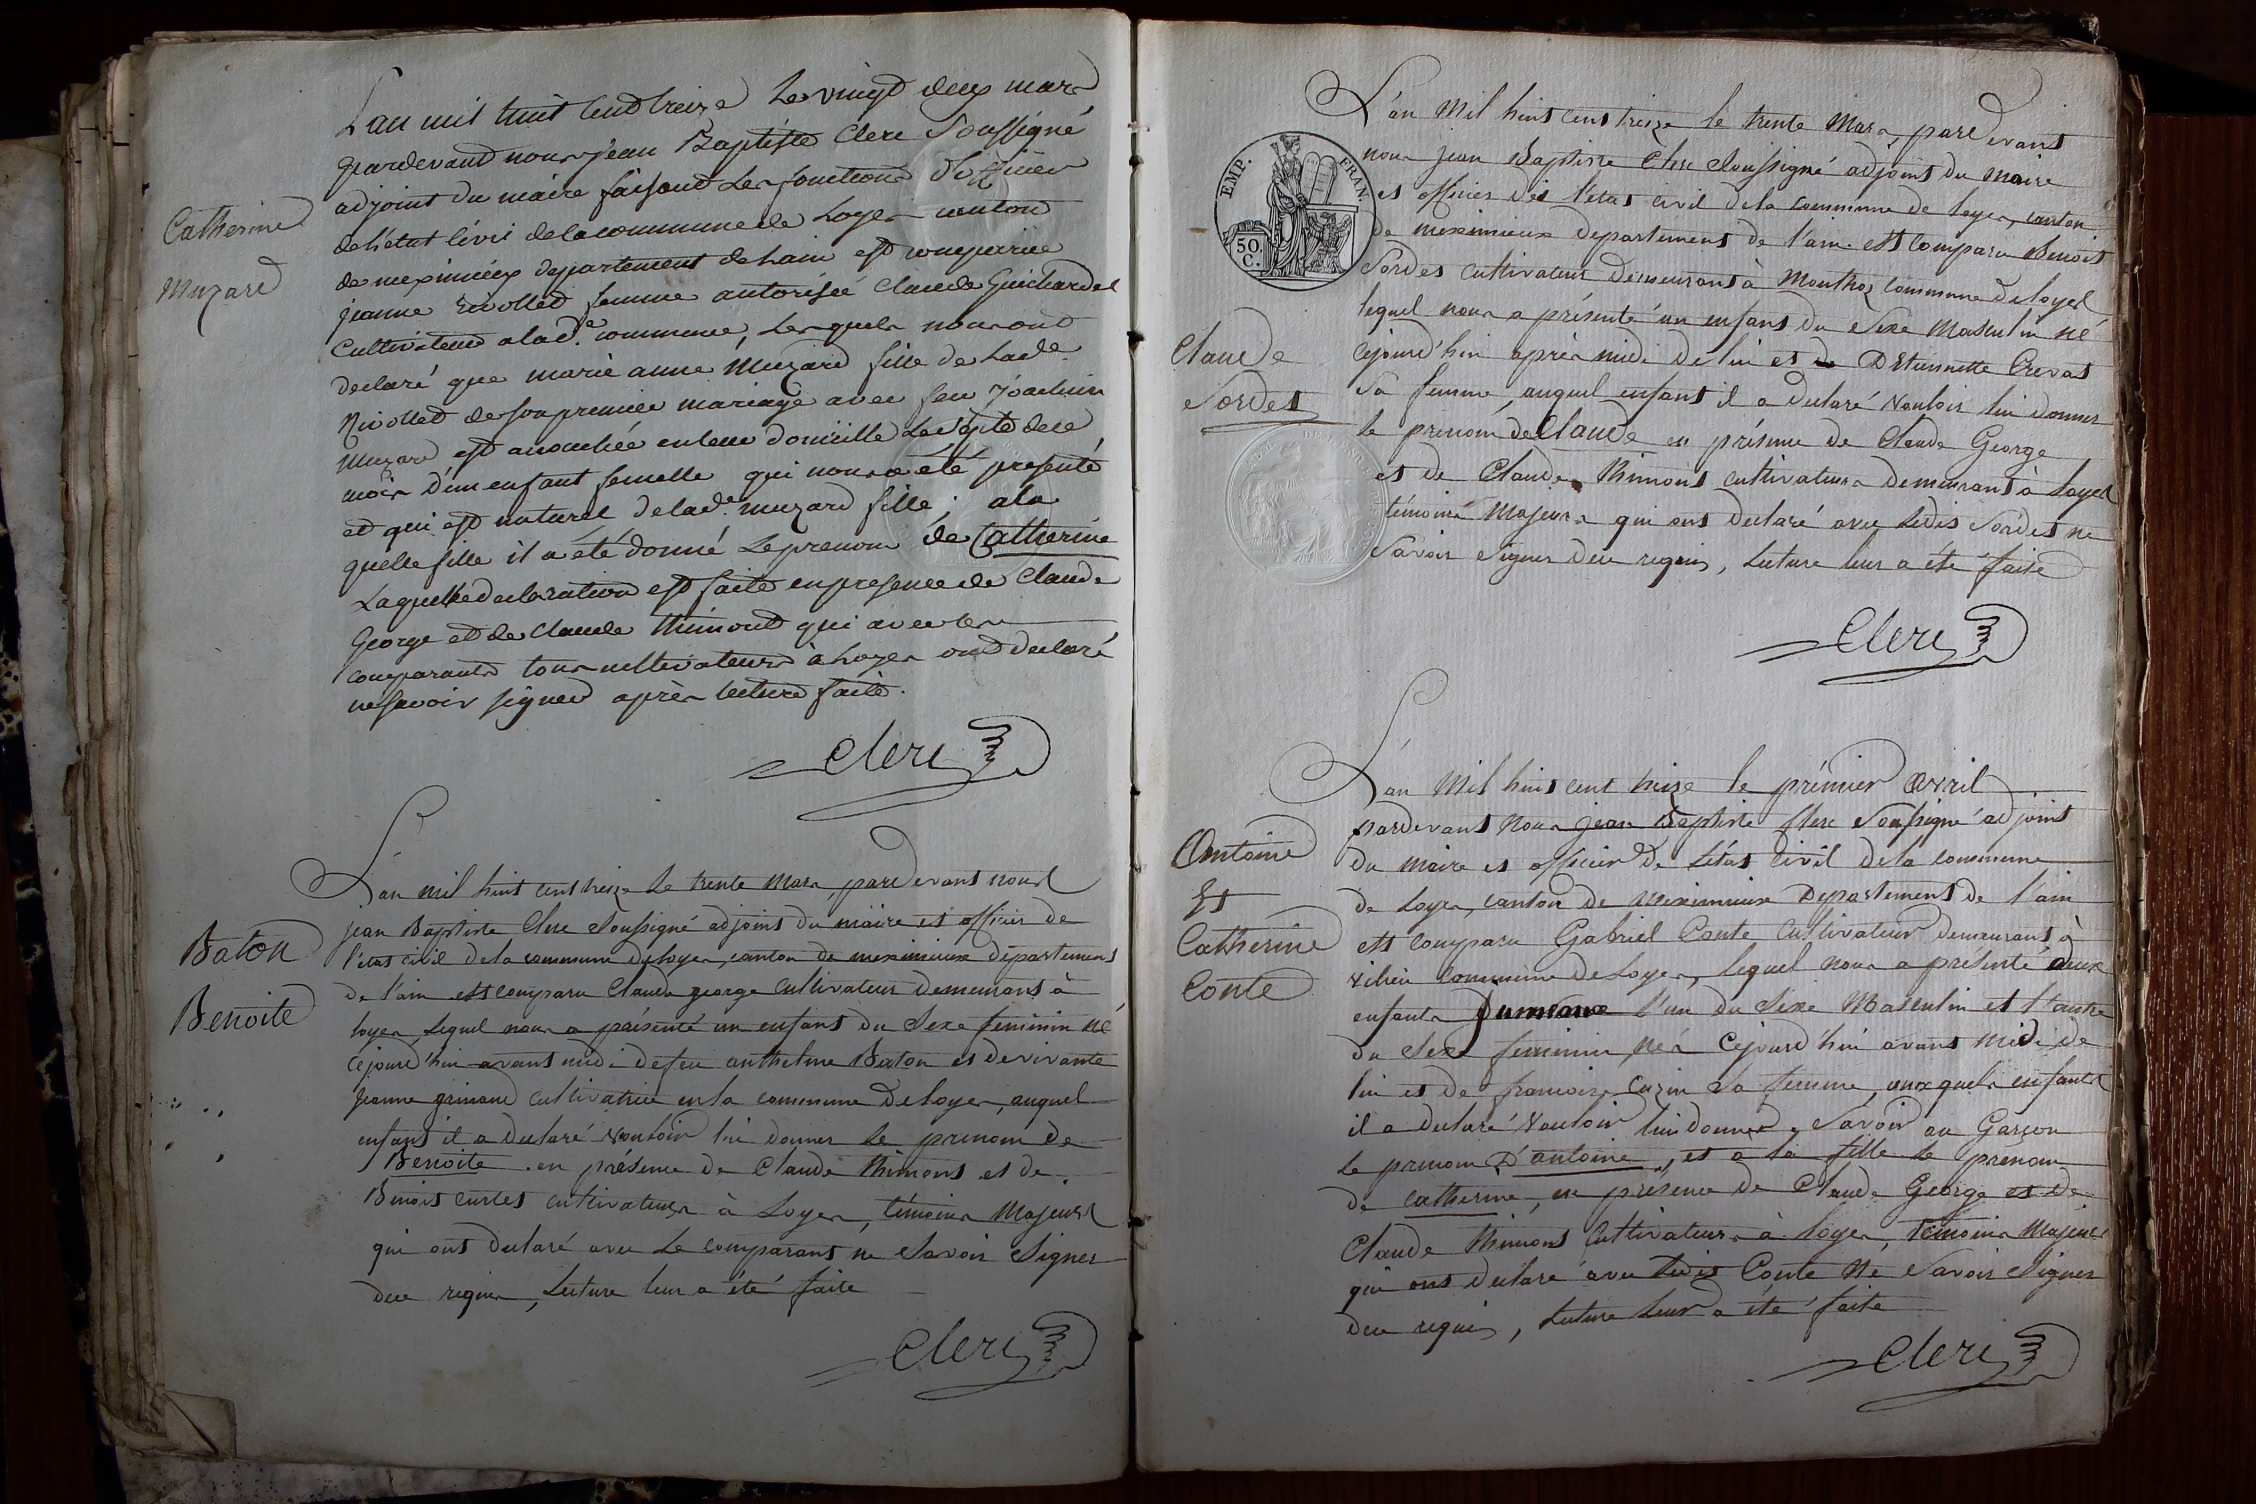 L'an mil huit cent treize Le vingt deux mars
pardevant nous jean Baptiste Clerc Soussigné
adjoint du maire faisant Les fonctions d'officier
Catherine
Muzard
de l'état civil de la commune de Loyes canton
de meximieux departement de Lain est comparue
jeanne Rivollet femme autorisée Claude Guichardet
Cultivateur a lad.e commune, Lesquels nous ont
declaré que marie anne Muzard fille de Lade.
Rivollet de son premier mariage avec feu joachim
Muzard est accouchée en leur domicille Le sept de ce
mois d'un enfant femelle qui nous a été presenté
et qui est naturel de lad.e muzard fille; a la
quelle fille il a été donné Le prenom de Catherine
Laquelle declaration est faite en presence de Claude
George et de Claude thimont qui avec les
comparants tous cultivateurs à Loyes ont declaré
ne savoir signer après lecture faite.
Clerc
L'an mil huit cent treize Le trente Mars, pardevant nous
jean Baptiste Clerc Soussigné adjoint du maire et officier de
Baton
Benoite
l'état civil de la commune de Loyes, canton de meximieux département
de l'ain est comparu Claude george Cultivateur demeurant à
loyes, Lequel nous a présenté un enfant du Sexe feminin né
Cejourd'hui avant midi de feu anthelme Baton et de vivante
jeanne grimand cultivatrice en la commune de Loyes, auquel
enfant il a declaré vouloir lui donner Le prenom de
Benoite. en présence de Claude thimont et de
Benoit curtet cultivateurs à Loyes, témoins Majeurs
qui ont declaré avec Le comparant ne Savoir Signer
de ce requis, Lecture leur a été faite
Clerc
L'an Mil huit cent treize le trente Mars, pardevant
nous jean Baptiste Clerc Soussigné adjoint du maire
EMP. FRAN.
50.
C.
et officier de l'état civil de la commune de Loyes, canton
de meximieux departement de l'ain est comparu Benoit
Sordet cultivateur demeurant à Monthoz commune de loyes
lequel nous a présenté un enfant du Sexe Masculin né
Claude
Sordet
cejourd'hui après midi de lui et de D'Etiennette Crevat
Sa femme, auquel enfant il a declaré Vouloir lui donner
le prenom de Claude en présence de Claude George
et de Claude thimont cultivateurs demeurant à Loyes
témoins Majeurs qui ont declaré avec Ledit Sordet ne
Savoir Signer de ce requis, Lecture leur a été faite
Clerc
L'an Mil huit cent treize le prémier avril
pardevant Nous jean Baptiste Clerc Soussigné adjoint
Antoine
Et
Catherine
Conte
du maire et officier de L'état civil de la commune
de Loyes, canton de Meximieux Departement de l'ain
est comparu Gabriel Conte Cultivateur demeurant à
vilieu commune de Loyes, lequel nous a présenté deux
enfants Jumeaux l'un du Sexe Masculin et l'autre
du Sexe feminin Nés Cejourd'hui avant Midi de
lui et de francoise Cuzin Sa femme, auxquels enfants
il a declaré Vouloir lui donner, Savoir au Garcon
Le prenom D'antoine, et a la fille le prenom
de catherine, en présence de Claude George et de
Claude thimont Cultivateurs à Loyes, temoins Majeurs
qui ont declaré avec Ledit Conte Ne Savoir Signer
de ce requis, Lecture Leur a été faite
Clerc